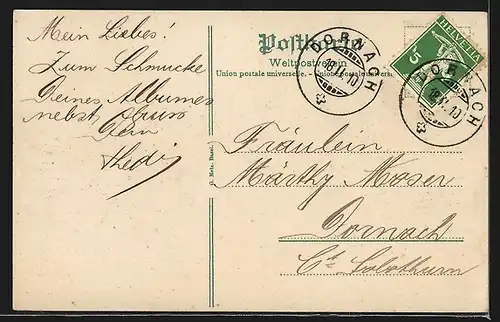 Mein Liebes!
Zum Schmucke
Deines Albumes
nebst Gruss
Dein
Thedi
Postkarte
Weltpostverein
Union postale universelle.
HELVETIA
5
DORNACH
DORNACH
Fräulein
Märthy Moser
Dornach
Ct. Solothurn
G. Metz, Basel.